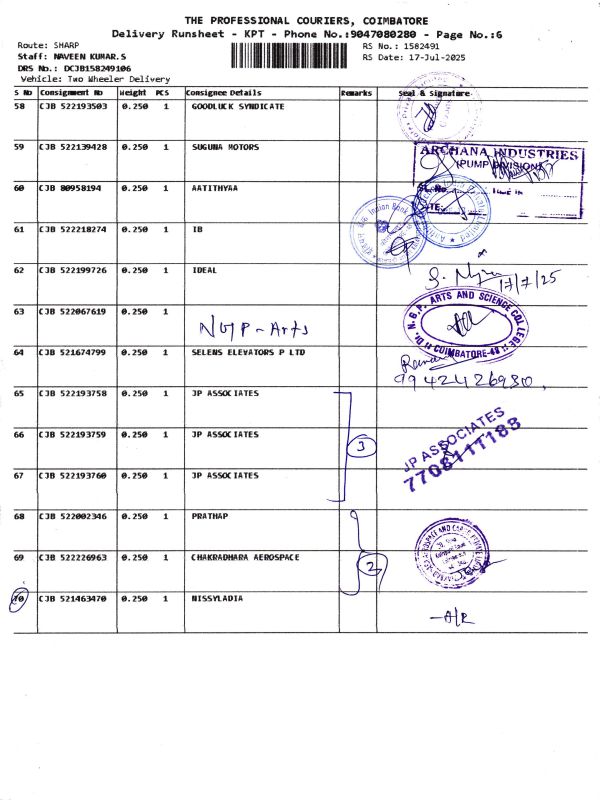 THE PROFESSIONAL COURIERS, COIMBATORE
Delivery Runsheet - KPT - Phone No.:9047080280 - Page No.:6
Route: SHARP
RS No.: 1582491
Staff: NAVEEN KUMAR.S
RS Date: 17-Jul-2025
DRS No.: DCJB158249106
Vehicle: Two Wheeler Delivery
S No Consignment No Weight PCS Consignee Details Remarks Seal & Signature
58 CJB 522193503 0.250 1 GOODLUCK SYNDICATE
59 CJB 522139428 0.250 1 SUGUNA MOTORS
ARCHANA INDUSTRIES
(PUMP DIVISION)
60 CJB 80958194 0.250 1 AATITHYAA
61 CJB 522218274 0.250 1 IB
Indian Bank
62 CJB 522199726 0.250 1 IDEAL
17/7/25
63 CJB 522067619 0.250 1
NGP-Arts
Dr. N.G.P. ARTS AND SCIENCE COLLEGE
COIMBATORE-48
64 CJB 521674799 0.250 1 SELENS ELEVATORS P LTD
9942426930.
65 CJB 522193758 0.250 1 JP ASSOCIATES
66 CJB 522193759 0.250 1 JP ASSOCIATES
3
JP ASSOCIATES
7708111188
67 CJB 522193760 0.250 1 JP ASSOCIATES
68 CJB 522002346 0.250 1 PRATHAP
69 CJB 522226963 0.250 1 CHAKRADHARA AEROSPACE
2
70 CJB 521463470 0.250 1 NISSYLADIA
-A/R